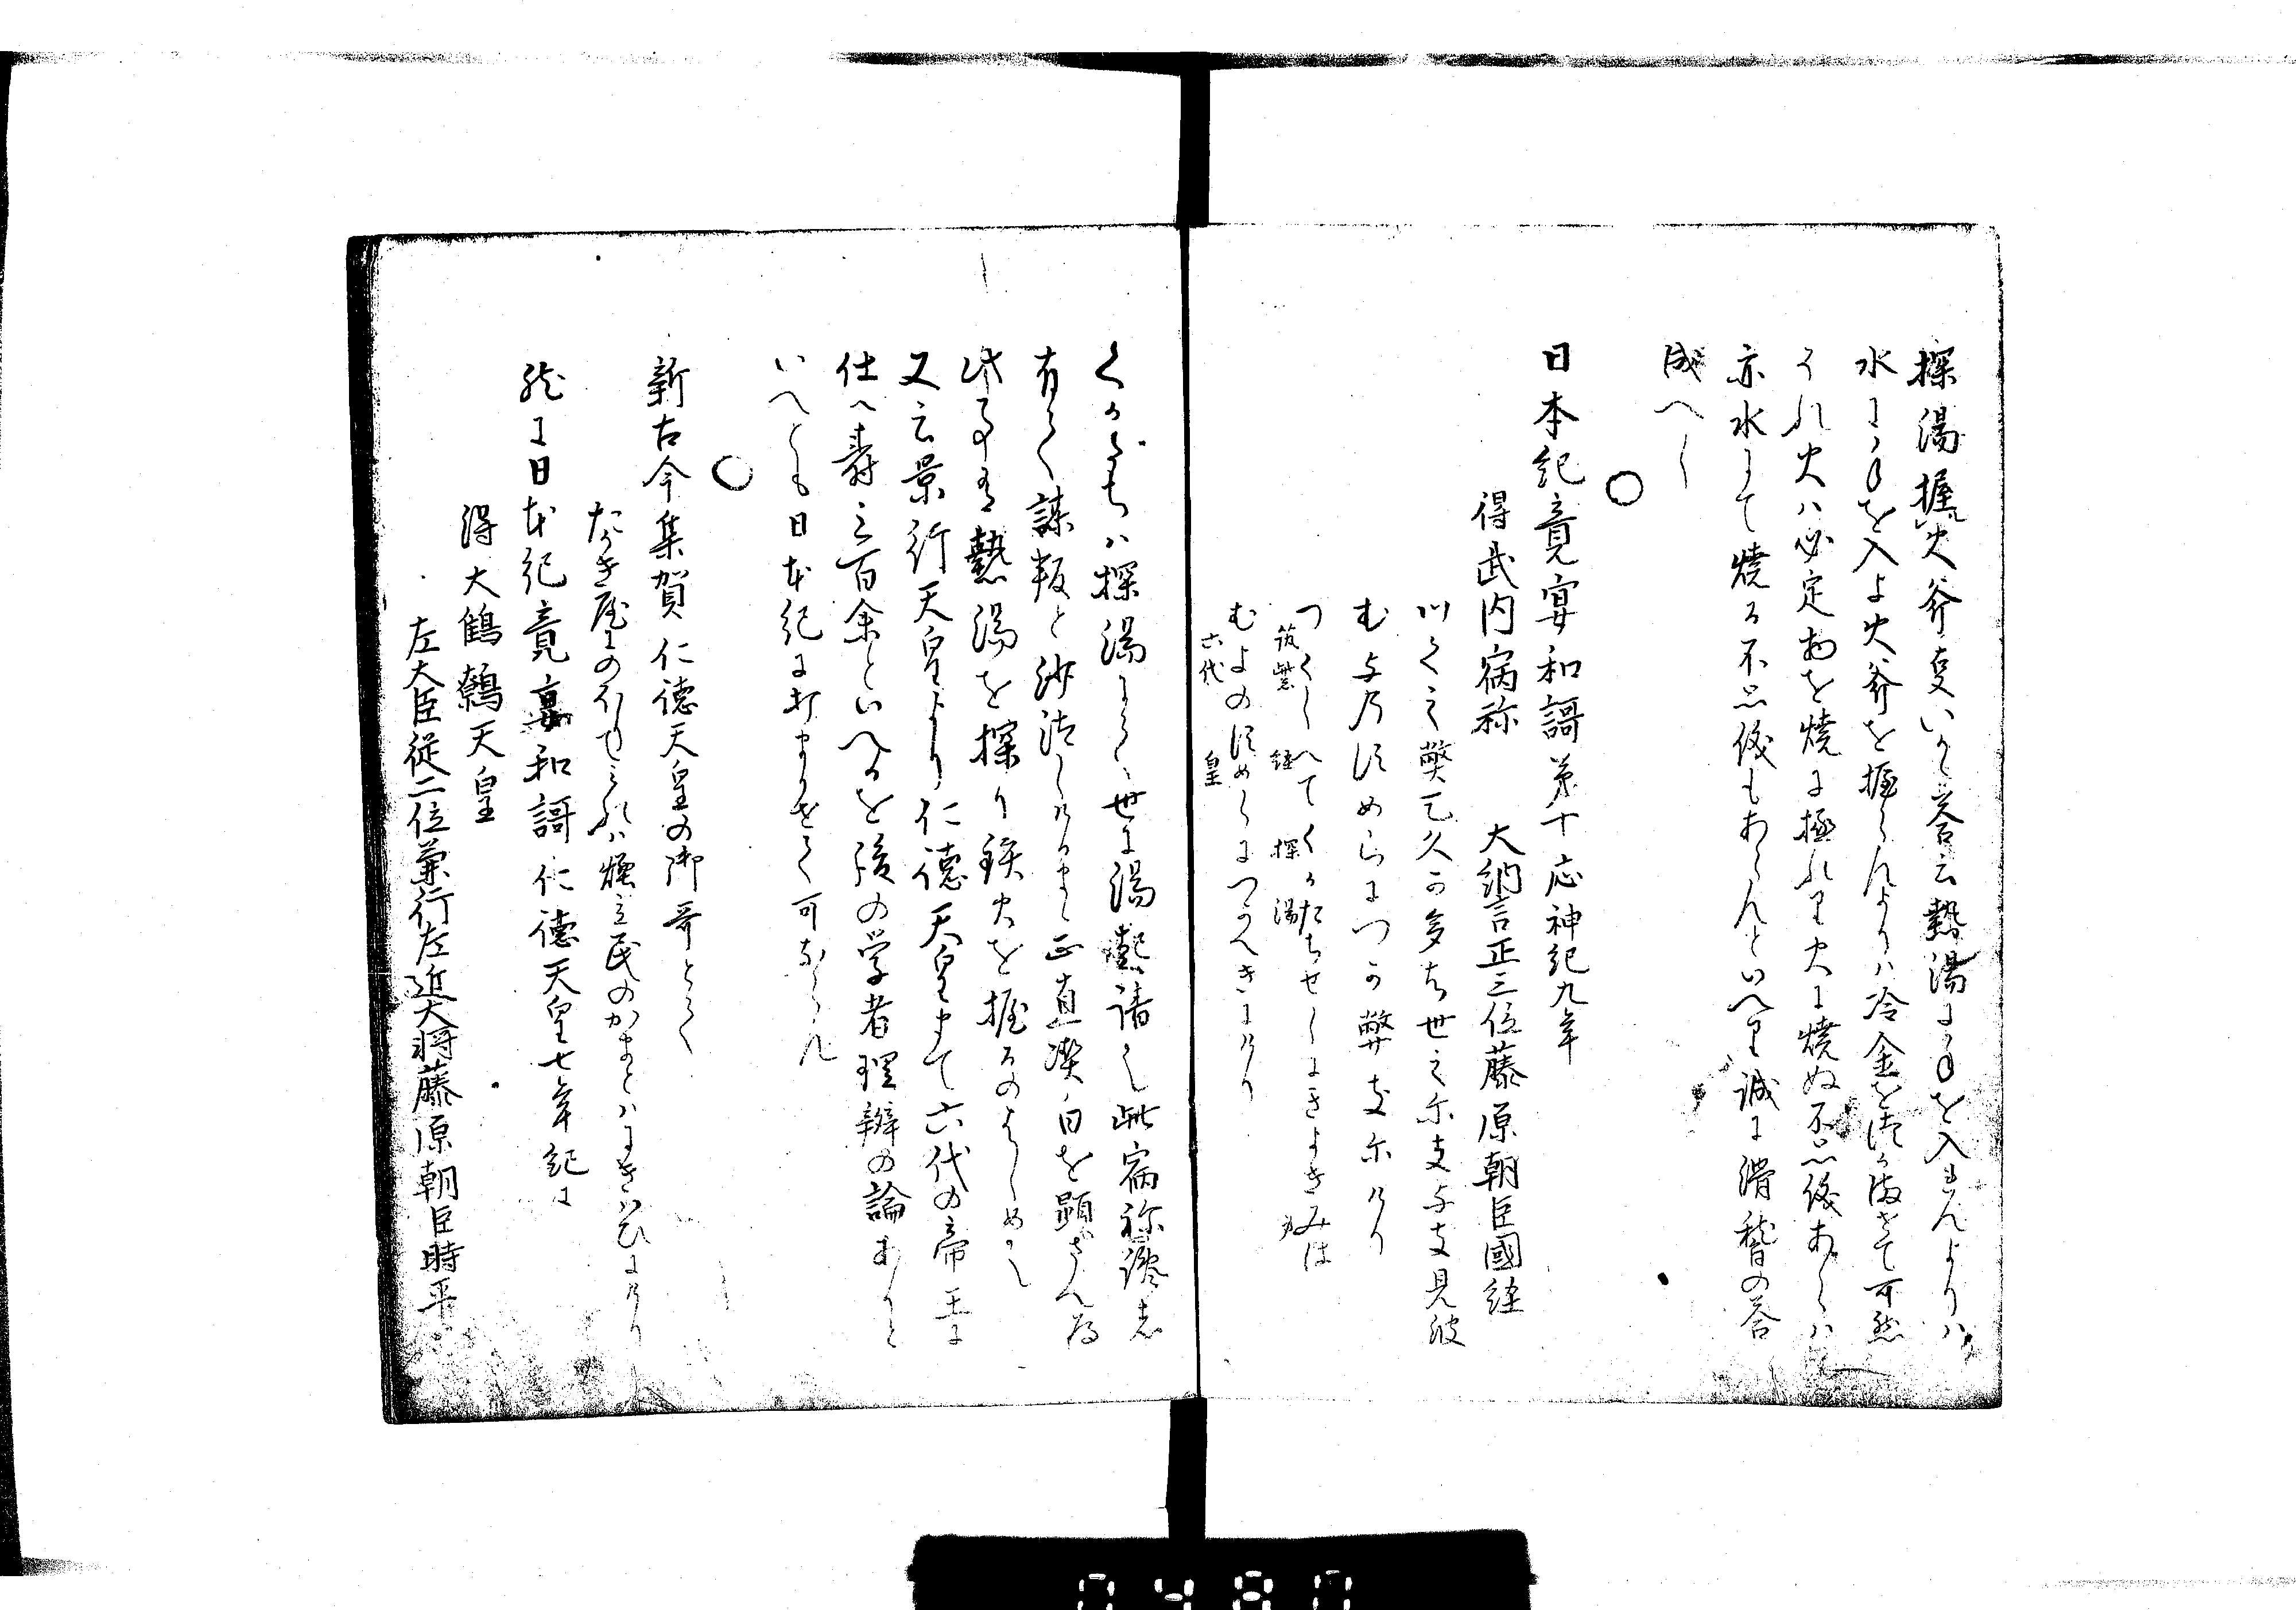 探湯握火斧事いかゝ答云熱湯に手を入れんよりハ
水に手を入よ火斧を握らんよりハ冷金を
それ火ハ必定物を焼に極れり火に焼ぬ不思儀あらハ
亦水にて焼る不思儀もあらんといへり誠に滑稽の答
成へし
○
日本紀竟宴和謌第十応神紀九年
得武内宿祢 大納言正三位藤原朝臣國経
川久之弊天久可多知世之尓支与支見波
む与乃須めらにつか弊支尓けり
つくしへてくかたちせしにきよきみは
筑紫 経 探湯 身
むよのすめらにつかへきにけり
六代 皇
くかたちハ探湯とかく世に湯起請也此宿祢讒者
有て謀叛と沙汰しけるまゝ正直潔白を顕さん為
此事有熱湯を探り鉄火を握るのはしめ也
又云景行天皇より仁徳天皇まて六代の帝王に
仕へ壽三百余といへるを後の学者理辨の論ありと
いへとも日本紀に打まかせて可ならん
○
新古今集賀仁徳天皇の御哥とて
たかき屋にのほりてみれハ煙立民のかまとハにきハひにけり
然に日本紀竟宴和謌仁徳天皇七年紀に
得大鷦鷯天皇
左大臣従二位兼行左近大将藤原朝臣時平
0480